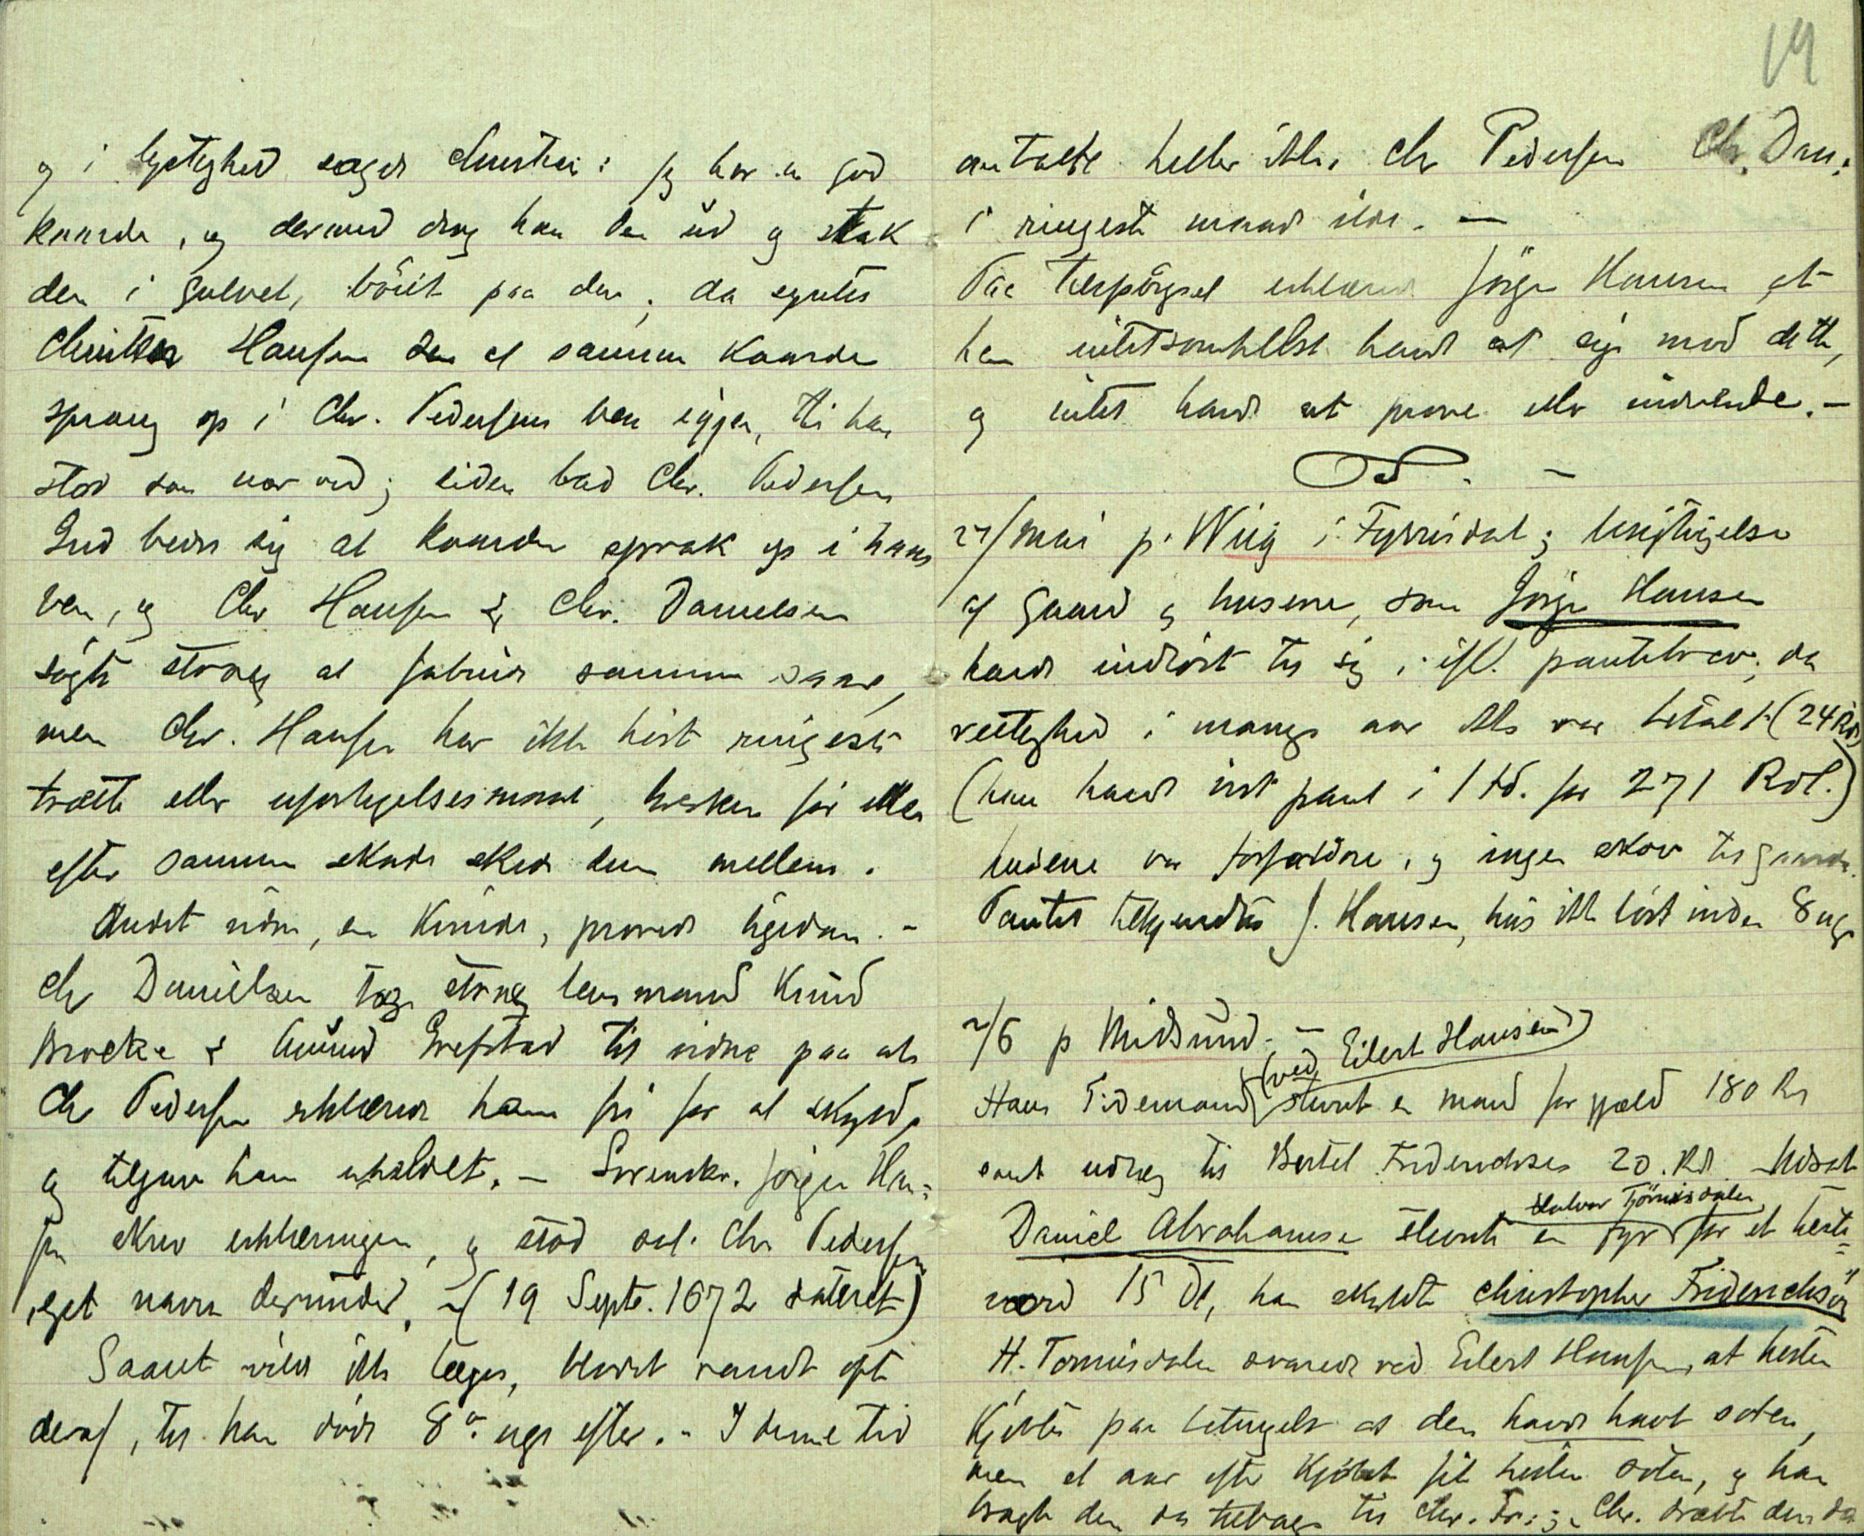 og i lystighed sagde Christen: Jeg har en god
kaarde, og dermed drog han den ud og stak
den i gulvet, böiet paa den; da syntes
Christen Hansen den at samme kaarde
sprang op i Chr. Pedersens ben igjen, thi han
stod som nær ved; siden bad Chr. Pedersen
Gud bedre sig at kaarden sprak op i hans
ben, og Chr Hansen & Chr. Danielsen
sögte strax at forbinde samme saar,
men Chr. Hansen har ikke hört ringeste
trætte eller uforligelsesmaal, hverken för eller
efter samme skade skede dem mellem.
Andet vidne, en Kvinde, provede ligedan. -
Chr Danielsen tog strax lensmand Knud
Brocke & Amund Grefstad til vidne paa at
Chr Pedersen erklærede ham fri for al skyld,
og tilgav ham uholdet. - Sorenskr. Jörgen Han=
sen skrev erklæringen, og stod sal. Chr Pedersens
eget navn derunder. - (19 Septr. 1672 dateret)
Saaret vilde ikke læges, blodet randt ofte
deraf, til han döde 8 uger efter. - I denne tid
19
antalte heller ikke Chr Pedersen Chr. Dan:
i ringeste maade ilde. -
Paa tilspörgsel erklærede Jörgen Hansen at
han intetsomhelst havde at sige mod dette,
og intet havde at prove eller indvende. -
27/mai p. Wiig i Fyrrisdal; besigtigelse
af gaard og husene, som Jörgen Hansen
havde indlöst til sig, ifl. pantebrev, da
rettighed i mange aar ikke var betalt (24 Rdr)
(han havde sit pant i 1 td. for 271 Rdl.)
husene var forfaldne, og ingen skov til gaarden.
Pantet tilkjendtes J. Hansen, hvis ikke löst inden 8 uger
2/6 p Midsund. -
(ved Eilert Hansen)
Hans Tidemand stevnt en mand for gjæld 180 Rd
samt udlæg til Bertel Friderichsen 20 Rd
Daniel Abrahamsen stevnte en fyr for et heste=
Halvor Tjönnisdalen
værd 15 Dl, han skyldte Christopher Friderichsön
H. Tonnisdalen svarede ved Eilert Hansen, at hesten
kjöbtes paa betingelse at den havde havt soten,
men et aar efter kjöbet fik hesten soten, og han
bragte den da tilbage til Chr. Fr:; Chr. trækte den da